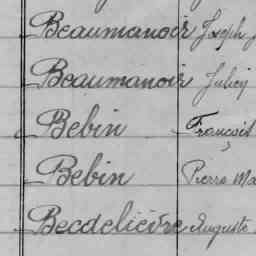 Beaumanoir Joseph
Beaumanoir Julien
Bébin François
Bébin Pierre Ma
Becdelièvre Auguste